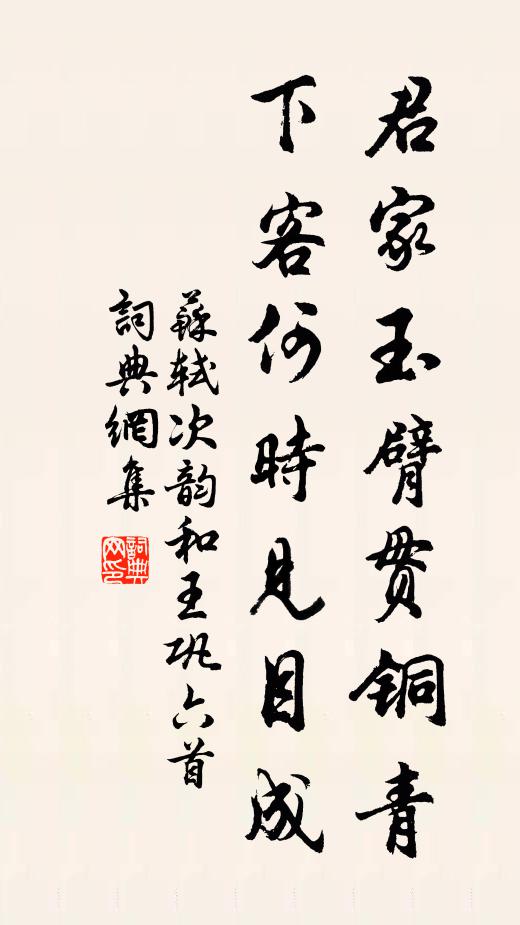 君家玉臂贯铜青
下客何時见目成
蘇轼次韵和王巩六首
詞典網集
詞典网印